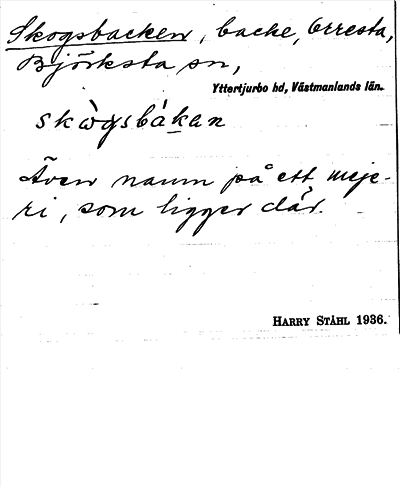 Skogsbacken, backe, Orresta,
Björksta sn,
Yttertjurbo hd, Västmanlands län.
skògsbákan
Även namn på ett meje-
ri, som ligger där.
HARRY STÅHL 1936.